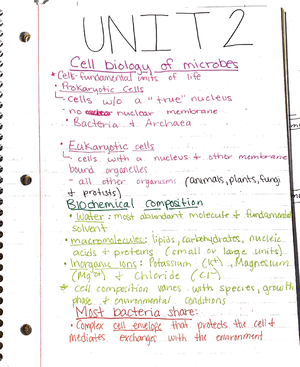 UNIT 2
Cell biology of microbes
* Cells - fundamental units of life
• Prokaryotic Cells
↳ cells w/o a "true" nucleus
no nuclear membrane
• Bacteria & Archaea
• Eukaryotic cells
↳ cells with a nucleus & other membrane
bound organelles
- all other organisms (animals, plants, fungi
& protists)
Biochemical composition
• water: most abundant molecule & fundamental
solvent
• macromolecules: lipids, carbohydrates, nucleic
acids & proteins (small or large units)
• Inorganic ions: Potassium (K⁺), Magnesium
(Mg²⁺) & Chloride (Cl⁻)
* cell composition varies with species, growth
phase & environmental conditions
Most bacteria share:
• Complex cell envelope that protects the cell &
mediates exchanges with the environment